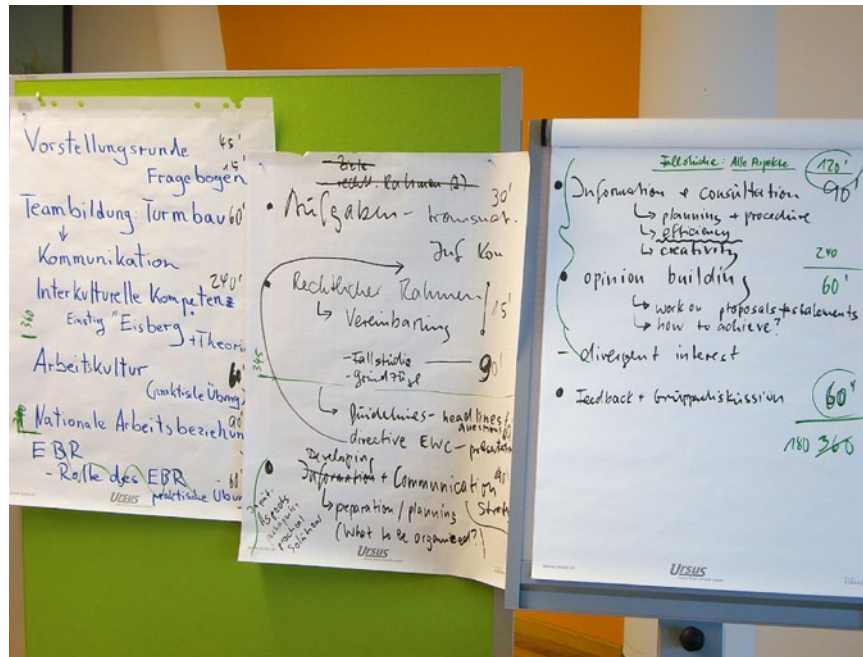 Vorstellungsrunde 45'
Fragebogen 15'
Teambildung: Turmbau 60'
Kommunikation
Interkulturelle Kompetenz 240'
Einstieg "Eisberg" + Theorie
360
Arbeitskultur 60'
(praktische Übung
Nationale Arbeitsbeziehun 90'
EBR
- Rolle des EBR 60'
praktische Übun
Ursus
Ziele
rechtl. Rahmen
• Aufgaben - transnat. 30'
Inf Kon
• Rechtlicher Rahmen 15'
Vereinbarung
- Fallstudie 90'
- Grundzüge
345
Guidelines - headlines
directive EWC -
Developing
• Information + Communication 90'
preparation / planning
(What to be organized?)
Aspects
practical
Solution
Ursus
Fallstudie: Alle Aspekte 120'
• Information + consultation 90'
planning + procedure
efficiency
creativity 240
• opinion building 60'
work on proposals + statements
how to achieve?
- divergent interest
• Feedback + Gruppendiskussion 60'
180 360
Ursus